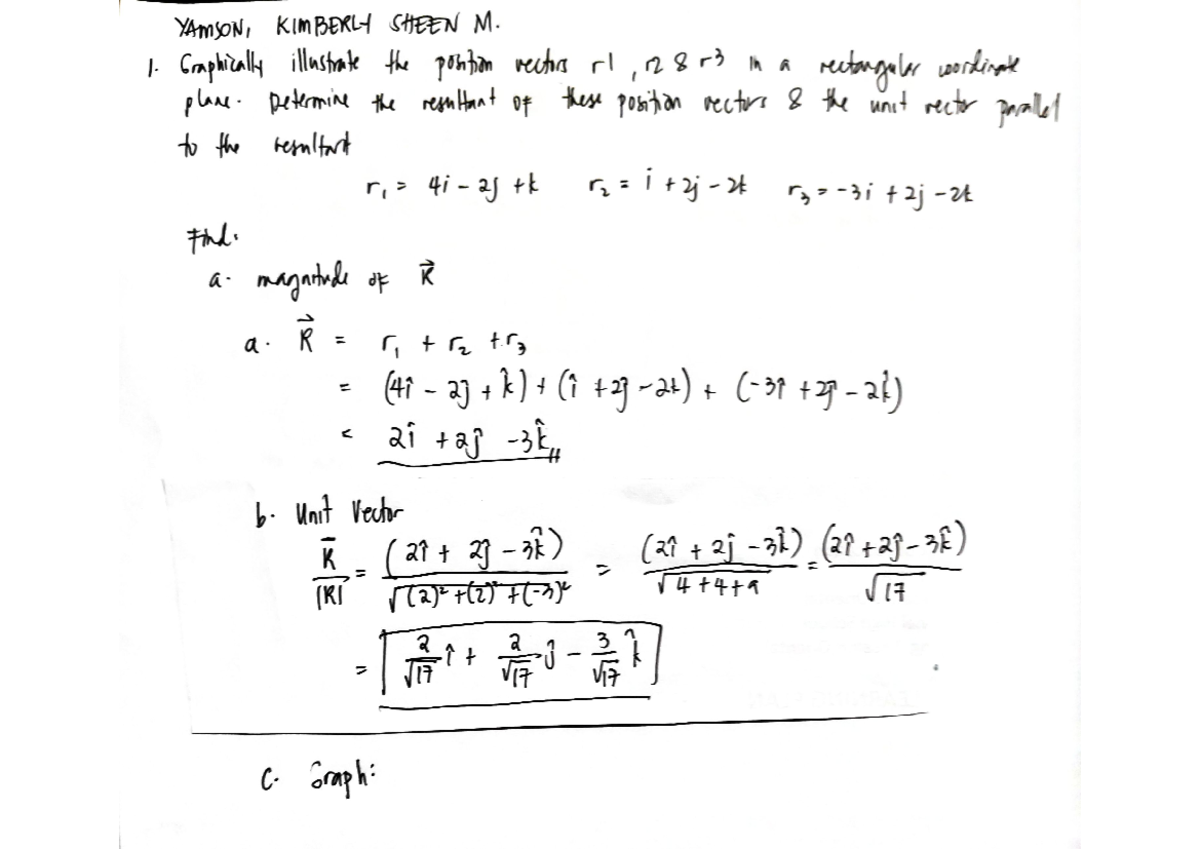 YAMSON, KIMBERLY SHEEN M.
1. Graphically illustrate the position vectors r1, r2 & r3 in a rectangular coordinate
plane. Determine the resultant of these position vectors & the unit vector parallel
to the resultant
r₁ = 4i - 2j + k r₂ = i + 2j - 2k r₃ = -3i + 2j - 2k
Find:
a. magnitude of R⃗
a. R⃗ = r₁ + r₂ + r₃
= (4î - 2ĵ + k̂) + (î + 2ĵ - 2k) + (-3î + 2ĵ - 2k̂)
= 2î + 2ĵ - 3k̂
b. Unit Vector
R̄/|R| = (2î + 2ĵ - 3k̂)/√((2)² + (2)² + (-3)²) = (2î + 2ĵ - 3k̂)/√(4+4+9) = (2î + 2ĵ - 3k̂)/√17
= 2/√17 î + 2/√17 ĵ - 3/√17 k̂
c. Graph: